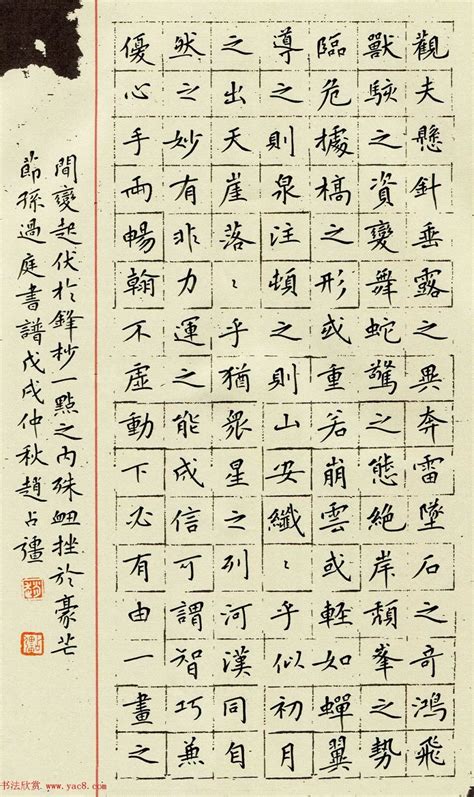 觀夫懸針垂露之異奔雷墜石之奇鴻飛
獸駭之資變舞蛇驚之態絕岸頹峯之勢
臨危據槁之形或重若崩雲或輕如蟬翼
導之則泉注頓之則山安纖〻乎似初月
之出天崖落〻乎猶眾星之列河漢同自
然之妙有非力運之能成信可謂智巧兼
優心手兩暢翰不虛動下必有由一畫之
間變起伏於鋒杪一點之內殊衄挫於豪芒
節孫過庭書譜戊戌仲秋趙占疆
书法欣赏 www.yac8.com